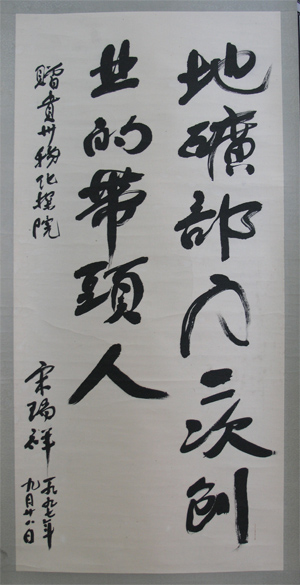 地礦部内二次創
业的带頭人
贈貴州物化探院
宋瑞祥
一九九七年
九月廿八日